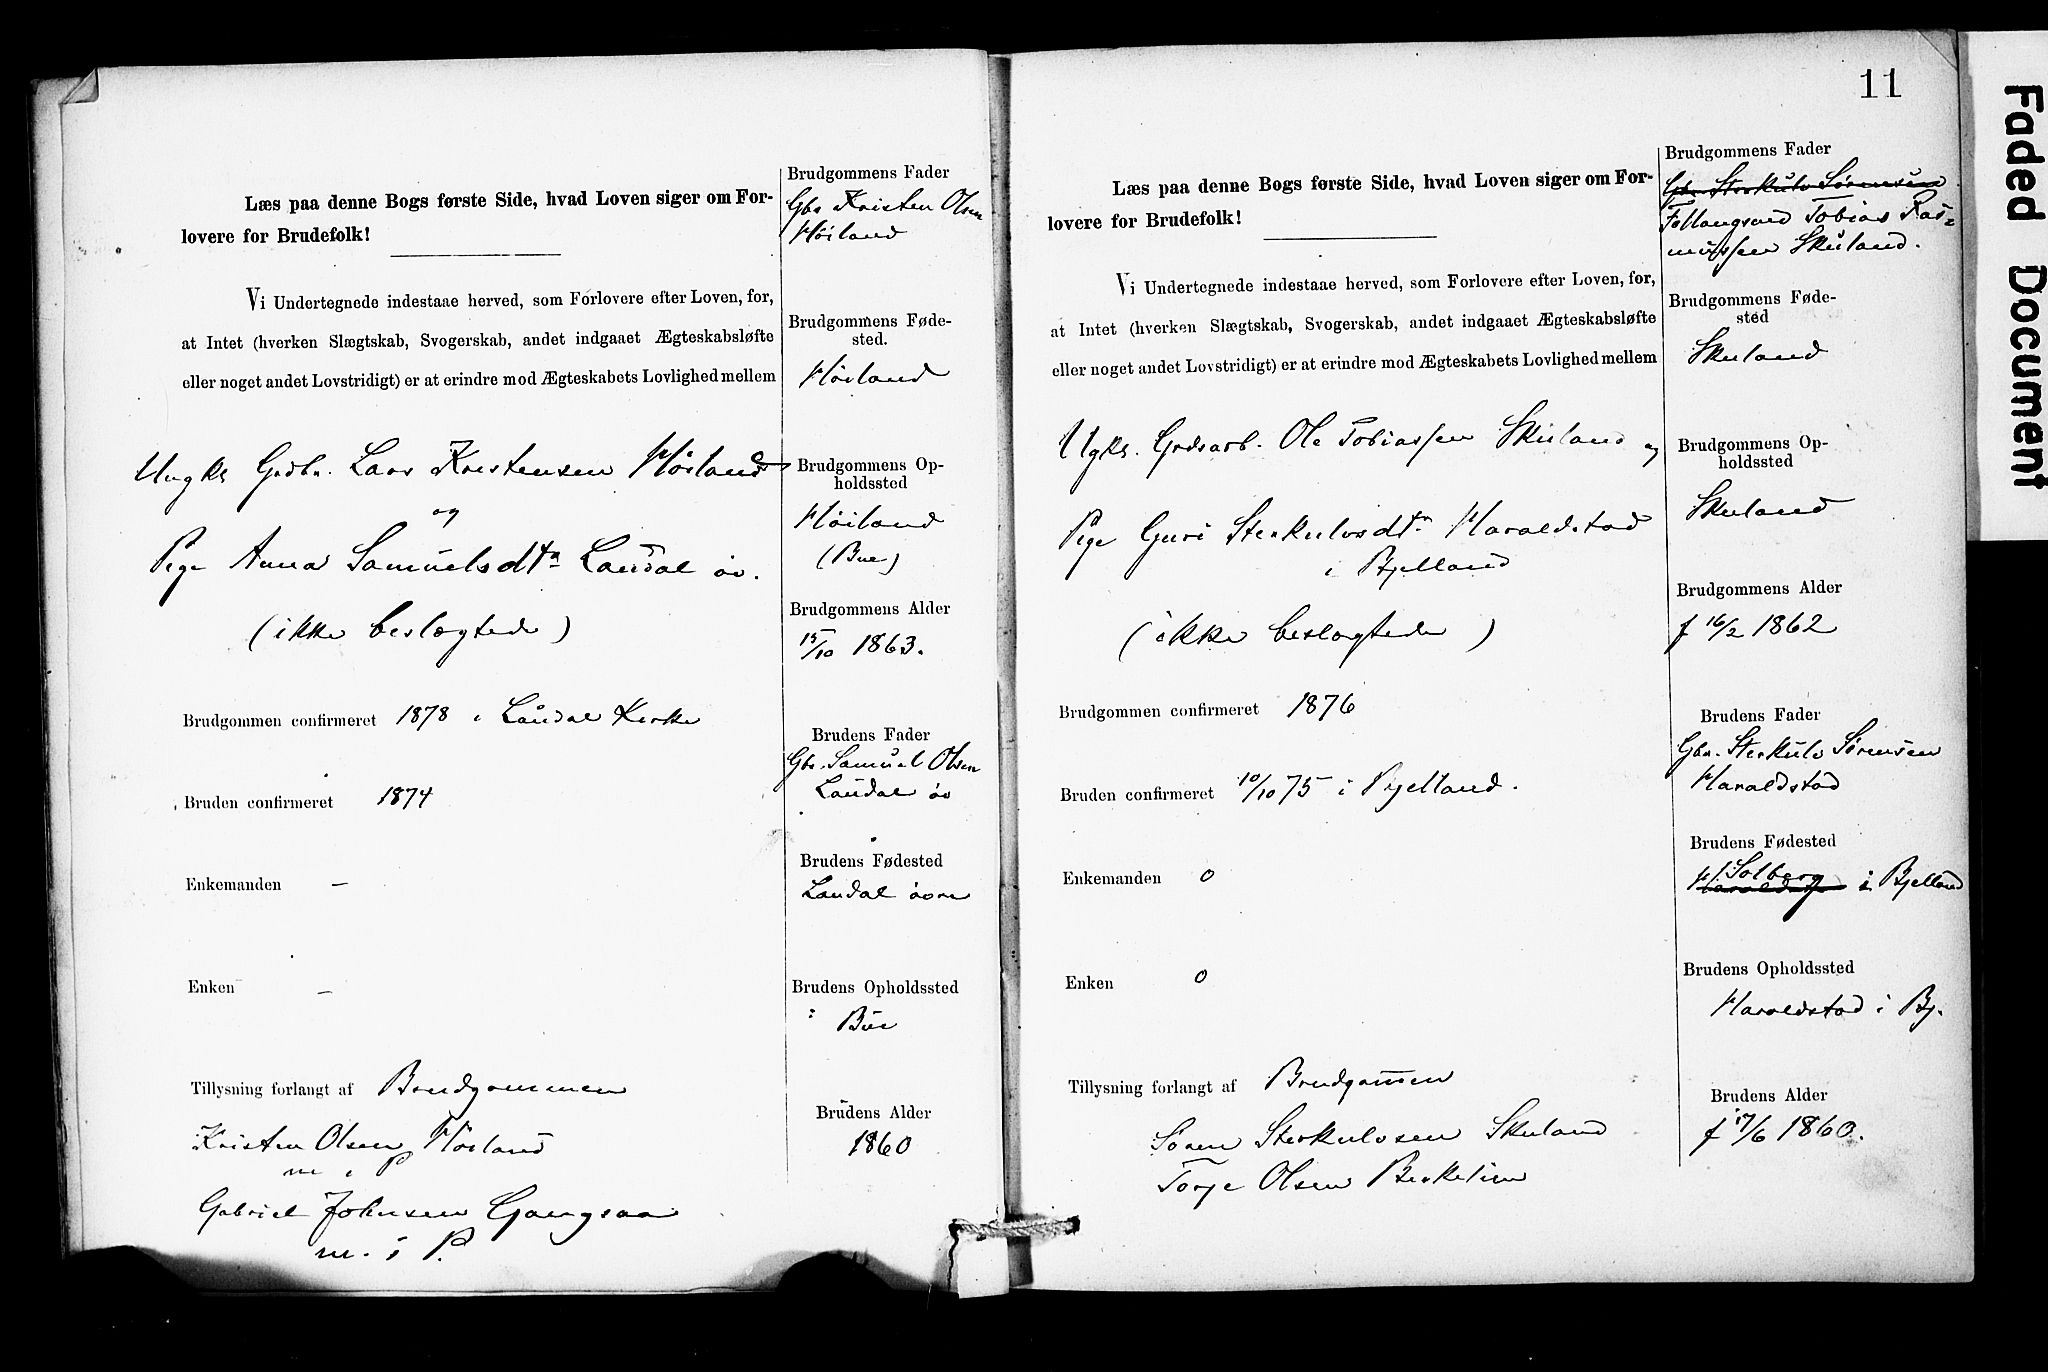 Læs paa denne Bogs første Side, hvad Loven siger om For-
lovere for Brudefolk!
Vi Undertegnede indestaae herved, som Forlovere efter Loven, for,
at Intet (hverken Slægtskab, Svogerskab, andet indgaaet Ægteskabsløfte
eller noget andet Lovstridigt) er at erindre mod Ægteskabets Lovlighed mellem
Ungks Grdbr. Lars Kristensen Høiland
og
Pige Anna Samuelsdtr Laudal øv.
(ikke beslægtede)
Brudgommen confirmeret 1878 i Laudal Kirke
Bruden confirmeret 1874
Enkemanden –
Enken –
Tillysning forlangt af Brudgommen
Kristen Olsen Høiland
m i P
Gabriel Johnsen Gangsaa
m. i P.
Brudgommens Fader
Gbr Kristen Olsen
Høiland
Brudgommens Føde-
sted.
Høiland
Brudgommens Op-
holdssted
Høiland
(Bue)
Brudgommens Alder
15/10 1863.
Brudens Fader
Gbr. Samuel Olsen
Laudal øv
Brudens Fødested
Laudal øvre
Brudens Opholdssted
Bue
Brudens Alder
1860
11
Læs paa denne Bogs første Side, hvad Loven siger om For-
lovere for Brudefolk!
Vi Undertegnede indestaae herved, som Forlovere efter Loven, for,
at Intet (hverken Slægtskab, Svogerskab, andet indgaaet Ægteskabsløfte
eller noget andet Lovstridigt) er at erindre mod Ægteskabets Lovlighed mellem
Ugks. Grdsarb. Ole Tobiassen Skuland og
Pige Guri Sterkulvsdtr Haraldstad
i Bjelland
(ikke beslægtede)
Brudgommen confirmeret 1876
Bruden confirmeret 10/10 75 i Bjelland.
Enkemanden 0
Enken 0
Tillysning forlangt af Brudgommen
Søren Sterkulvsen Skuland
Torje Olsen Birkelien
Brudgommens Fader
Gbr Sterkulv Sørensen
Follaugsmd Tobias Ras=
mussen Skuland.
Brudgommens Føde-
sted
Skuland
Brudgommens Op-
holdssted
Skuland
Brudgommens Alder
f 16/2 1862
Brudens Fader
Gbr. Sterkulv Sørensen
Haraldstad
Brudens Fødested
Solberg
i Bjelland
Brudens Opholdssted
Haraldstad i Bj.
Brudens Alder
f 17/6 1860.
Faded Document